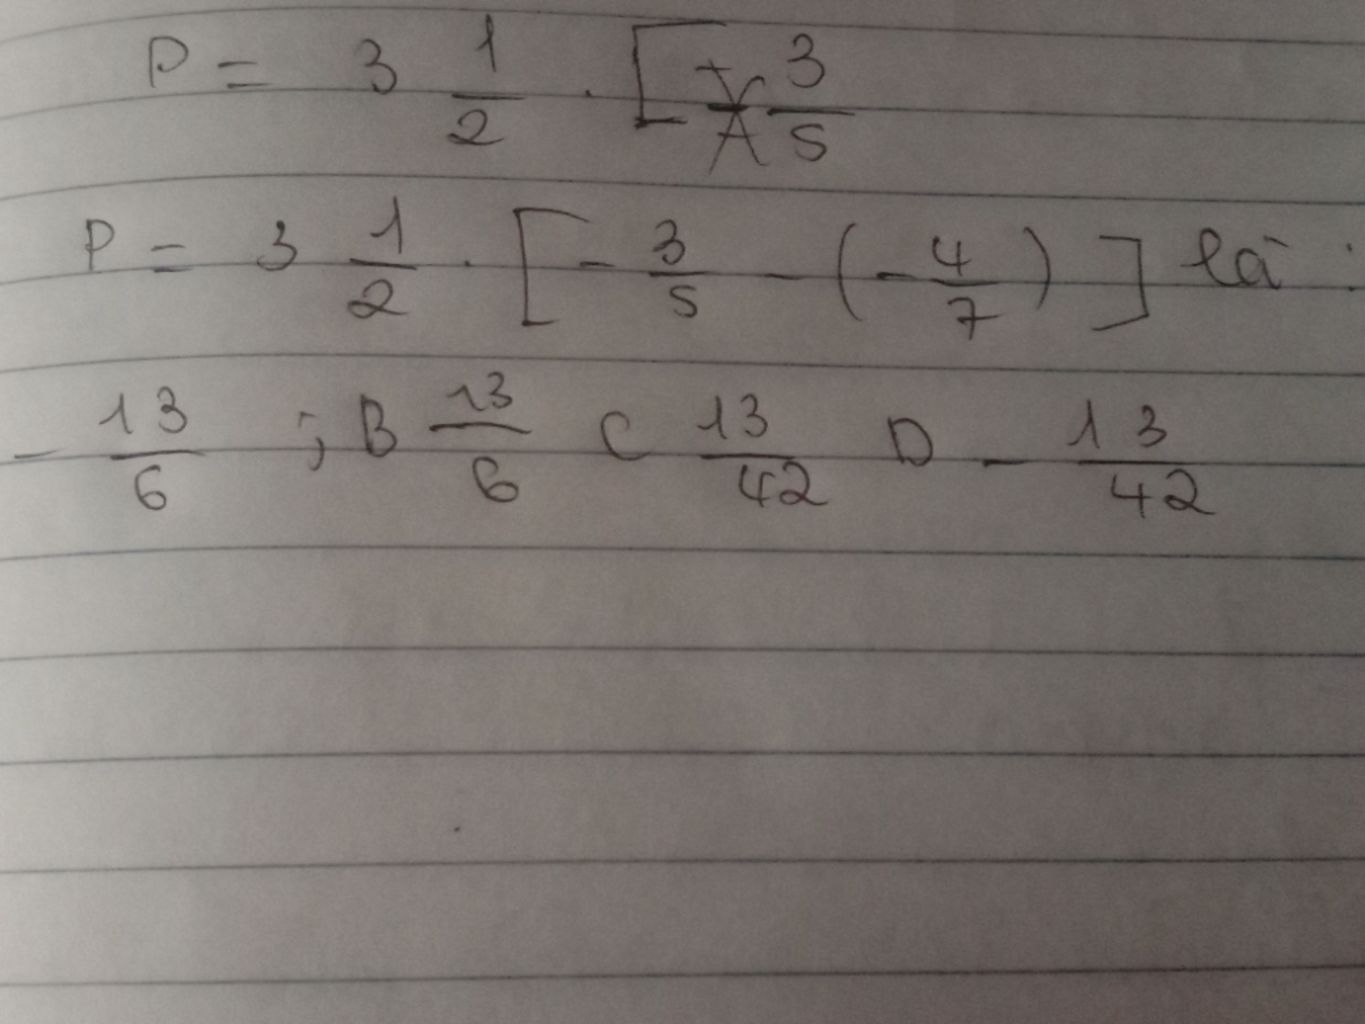 P = 3 1/2 . [ 3/5
P = 3 1/2 . [ - 3/5 - ( - 4/7 ) ] là :
- 13/6 ; B 13/6 C 13/42 D - 13/42